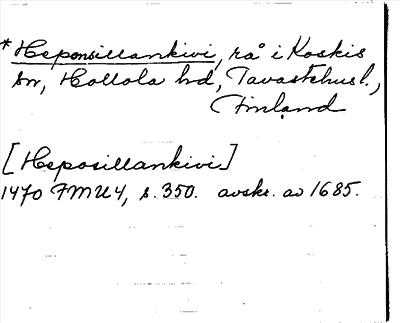 *Heponsillankivi, rå i Koskis
sn, Hollola hd, Tavastehus l.,
Finland
[Heposillankivi]
1470 FMU 4, s. 350. avskr. av 1685.